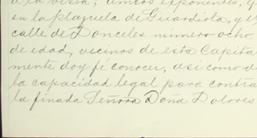 á la vista; ambos exponentes, q
en la plazuela de Guardiola, y el
calle de Donceles número ocho
de edad, vecinos de esta Capita
mente doy fé conocer, así como d
la capacidad legal para contra
la finada Señora Doña Dolores